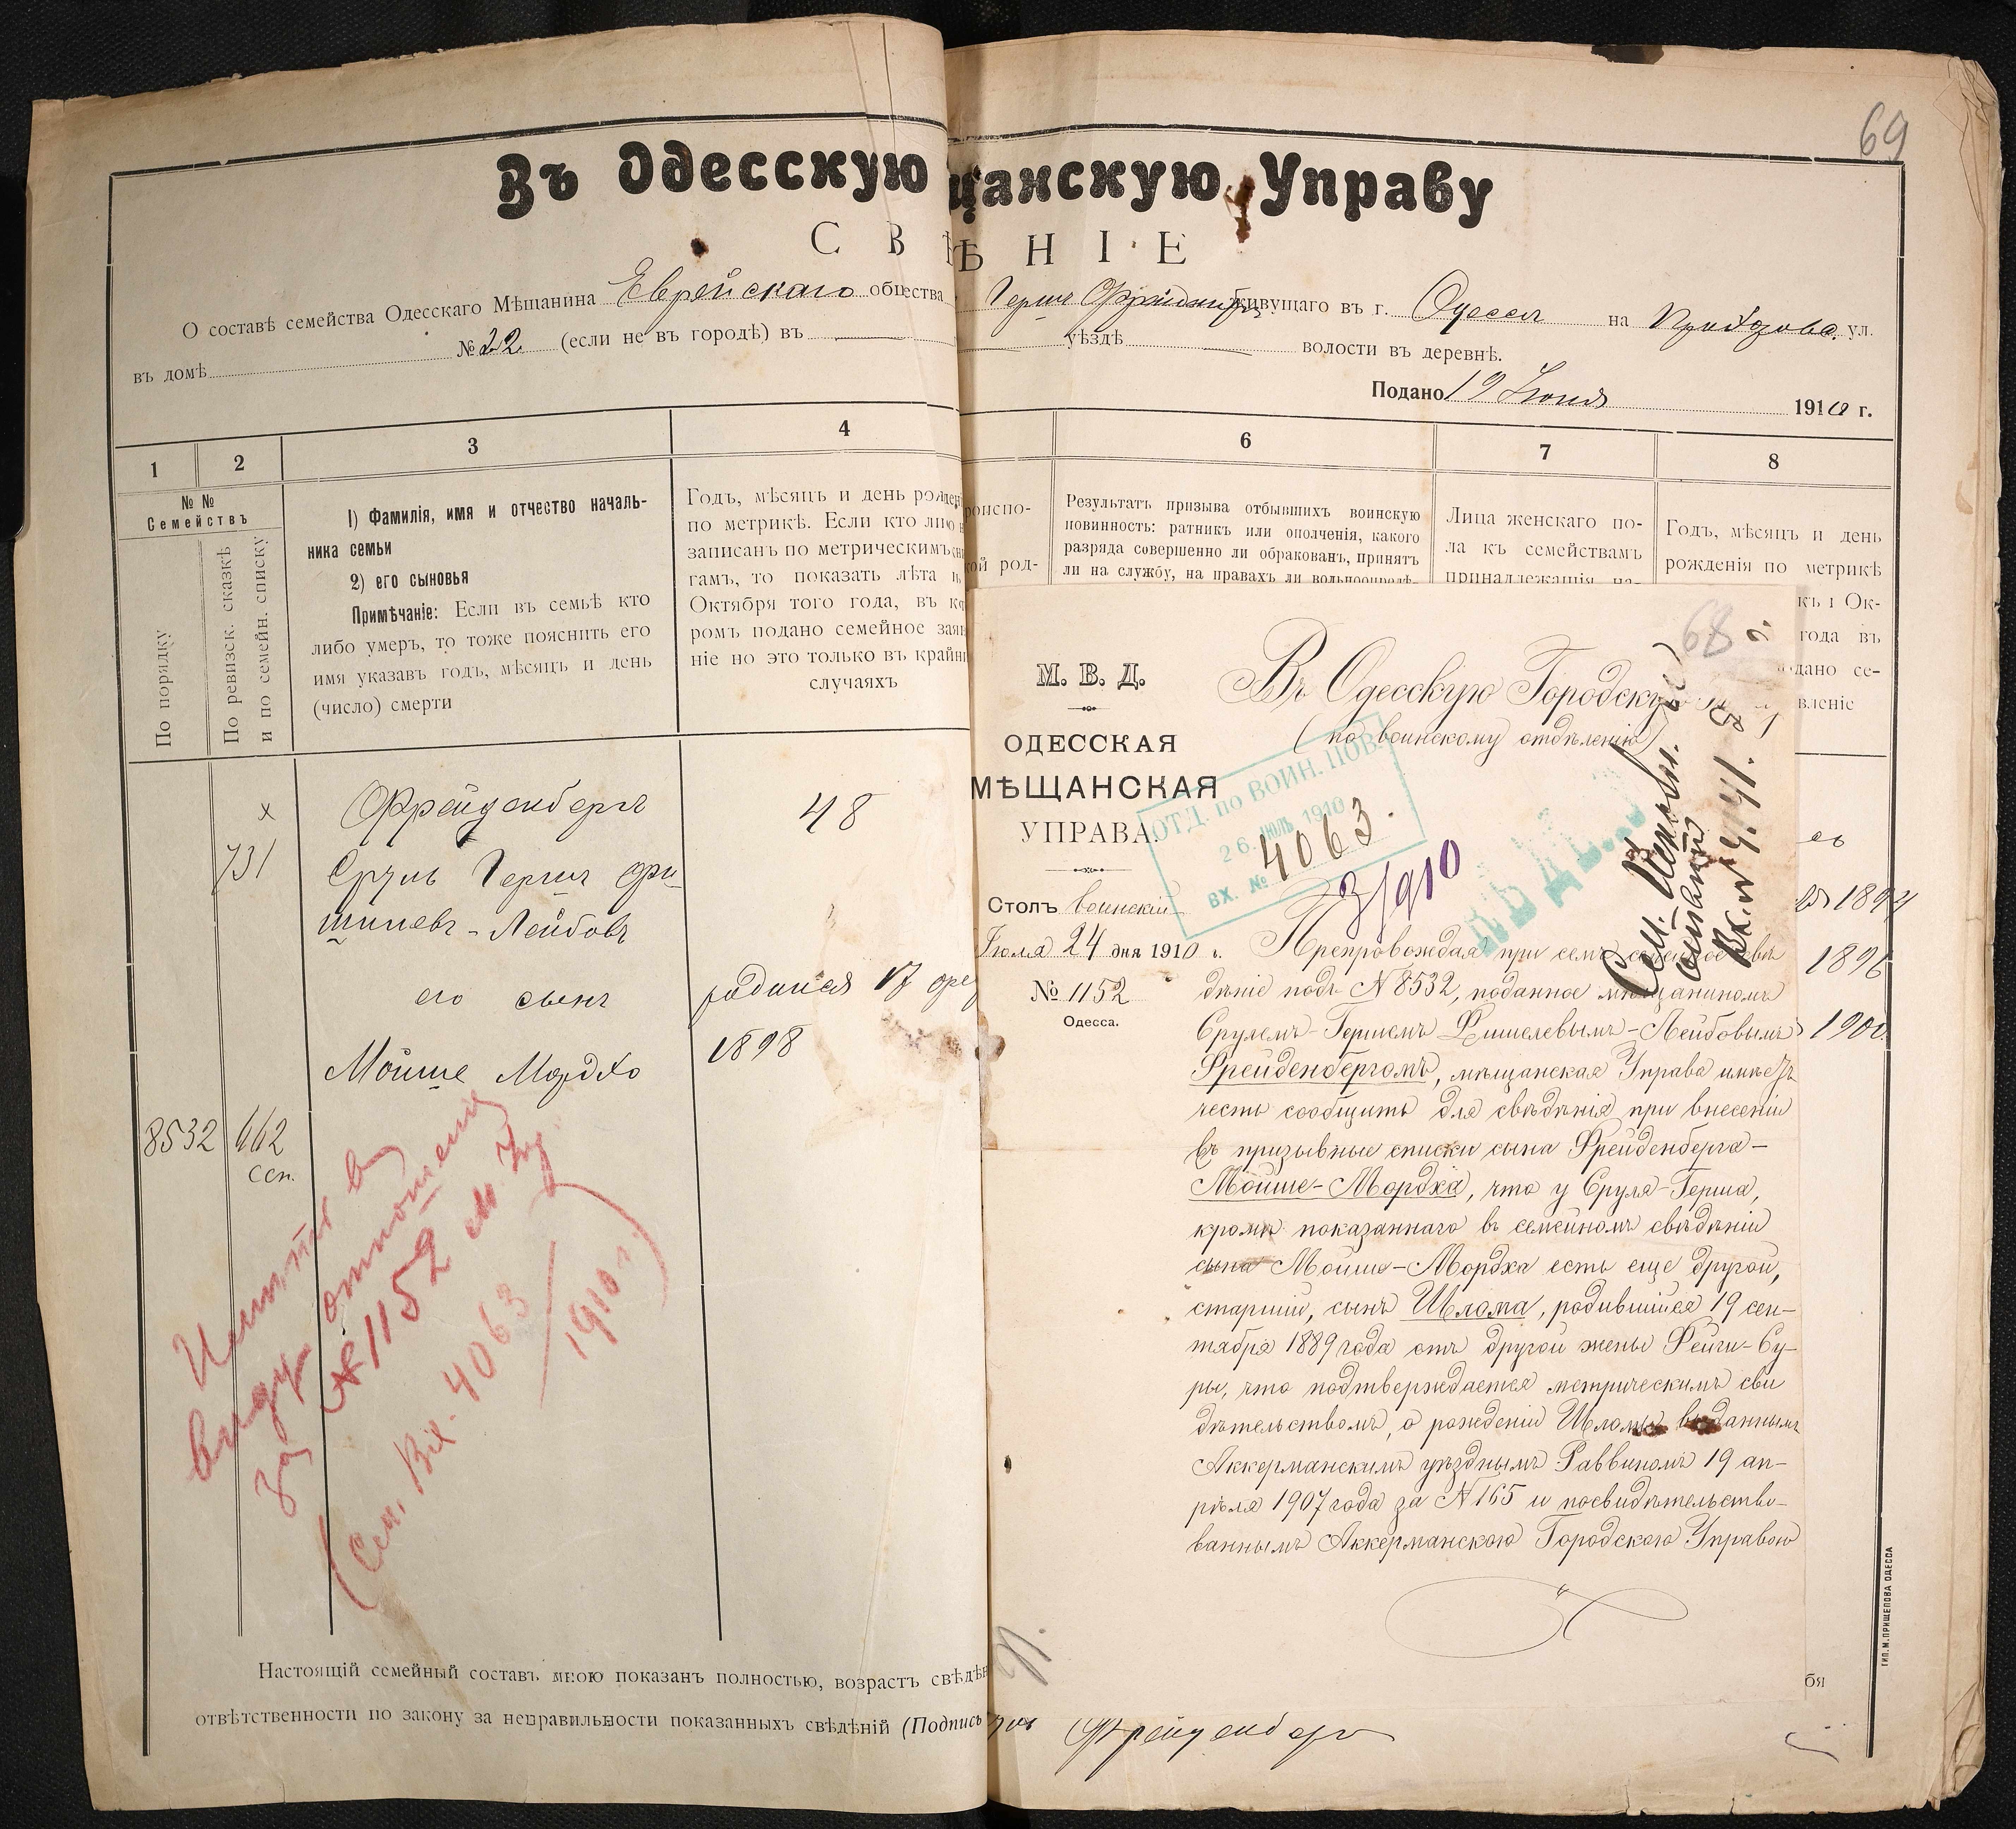 69
Въ Одесскую щанскую Управу
С В Ѣ Н І Е
О составѣ семейства Одесскаго Мѣщанина Еврейскаго общества Герш живущаго въ г. Одесса на ул.
въ домѣ № 22 (если не въ городѣ) въ уѣздѣ волости въ деревнѣ.
Подано 19 Іюня 1910 г.
1 2 3 4 6 7 8
№ №
Семействъ
По порядку
По ревизск. сказкѣ
и по семейн. списку
1) Фамилія, имя и отчество началь-
ника семьи
2) его сыновья
Примѣчаніе: Если въ семьѣ кто
либо умеръ, то тоже пояснить его
имя указавъ годъ, мѣсяцъ и день
(число) смерти
Годъ, мѣсяцъ и день рожден
по метрикѣ. Если кто либо н
записанъ по метрическимъ кни
гамъ, то показать лѣта къ
Октября того года, въ ко
ромъ подано семейное заяв
ніе но это только въ крайни
случаяхъ
роиспо-
ой род-
Результатъ призыва отбывшихъ воинскую
повинность: ратникъ или ополченія, какого
разряда совершенно ли обракованъ, принятъ
ли на службу, на правахъ ли вольноопредѣ-
Лица женскаго по-
ла къ семействамъ
принадлежащія на-
Годъ, мѣсяцъ и день
рожденія по метрикѣ
къ 1 Ок-
года въ
дано се-
вленіе
х
731
Фрейденбергъ
Сруль Герш Фи
шилевъ-Лейбовъ
48
его сынъ
Мойше Мордхо
родился 17
1898
8532 662
сеп.
Имѣть в
виду отношеніе
за № 1152 м. Упр.
(Сем. Вх. 4063
1910 г.)
68
М. В. Д.
ОДЕССКАЯ
МѢЩАНСКАЯ
УПРАВА.
Столъ воинскій
Іюля 24 дня 1910 г.
№ 1152
Одесса.
Въ Одесскую Городскую
(по воинскому отдѣленію)
ОТД. по ВОИН. ПОВ.
26. ІЮЛЬ 1910
ВХ. № 4063.
3/910
Вх. № 4441.
Препровождая при семъ семейное свѣ
дѣніе подъ № 8532, поданное мѣщаниномъ
Срулемъ-Гершемъ Фишелевымъ-Лейбовымъ
Фрейденбергомъ, мѣщанская Управа имѣетъ
честь сообщить для свѣдѣнія при внесеніи
въ призывные списки сына Фрейденберга-
Мойше-Мордха, что у Сруля-Герша,
кромѣ показаннаго въ семейномъ свѣдѣніи
сына Мойше-Мордха есть еще другой,
старшій, сынъ Шлома, родившійся 19 сен-
тября 1889 года отъ другой жены Фейги-Су-
ры, что подтверждается метрическимъ сви
дѣтельствомъ, о рожденіи Шломы выданнымъ
Аккерманскимъ уѣзднымъ Раввиномъ 19 ап-
рѣля 1907 года за № 165 и посвидѣтельство-
ваннымъ Аккерманскою Городскою Управою
1894
1896
1900
Настоящій семейный составъ мною показанъ полностью, возрастъ свѣдѣн бя
отвѣтственности по закону за неправильности показанныхъ свѣдѣній (Подпись Фрейденбергъ
ТИП. М. ПРИЩЕПОВА ОДЕССА